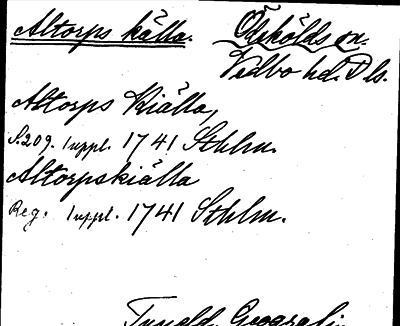 Altorps källa. Ödskölds sn.
Vedbo hd. Dls.
Altorps Kiälla,
S. 209. Suppl. 1741 Sthlm.
Altorpskiälla
Reg. Suppl. 1741 Sthlm.
Tuneld, Geografi